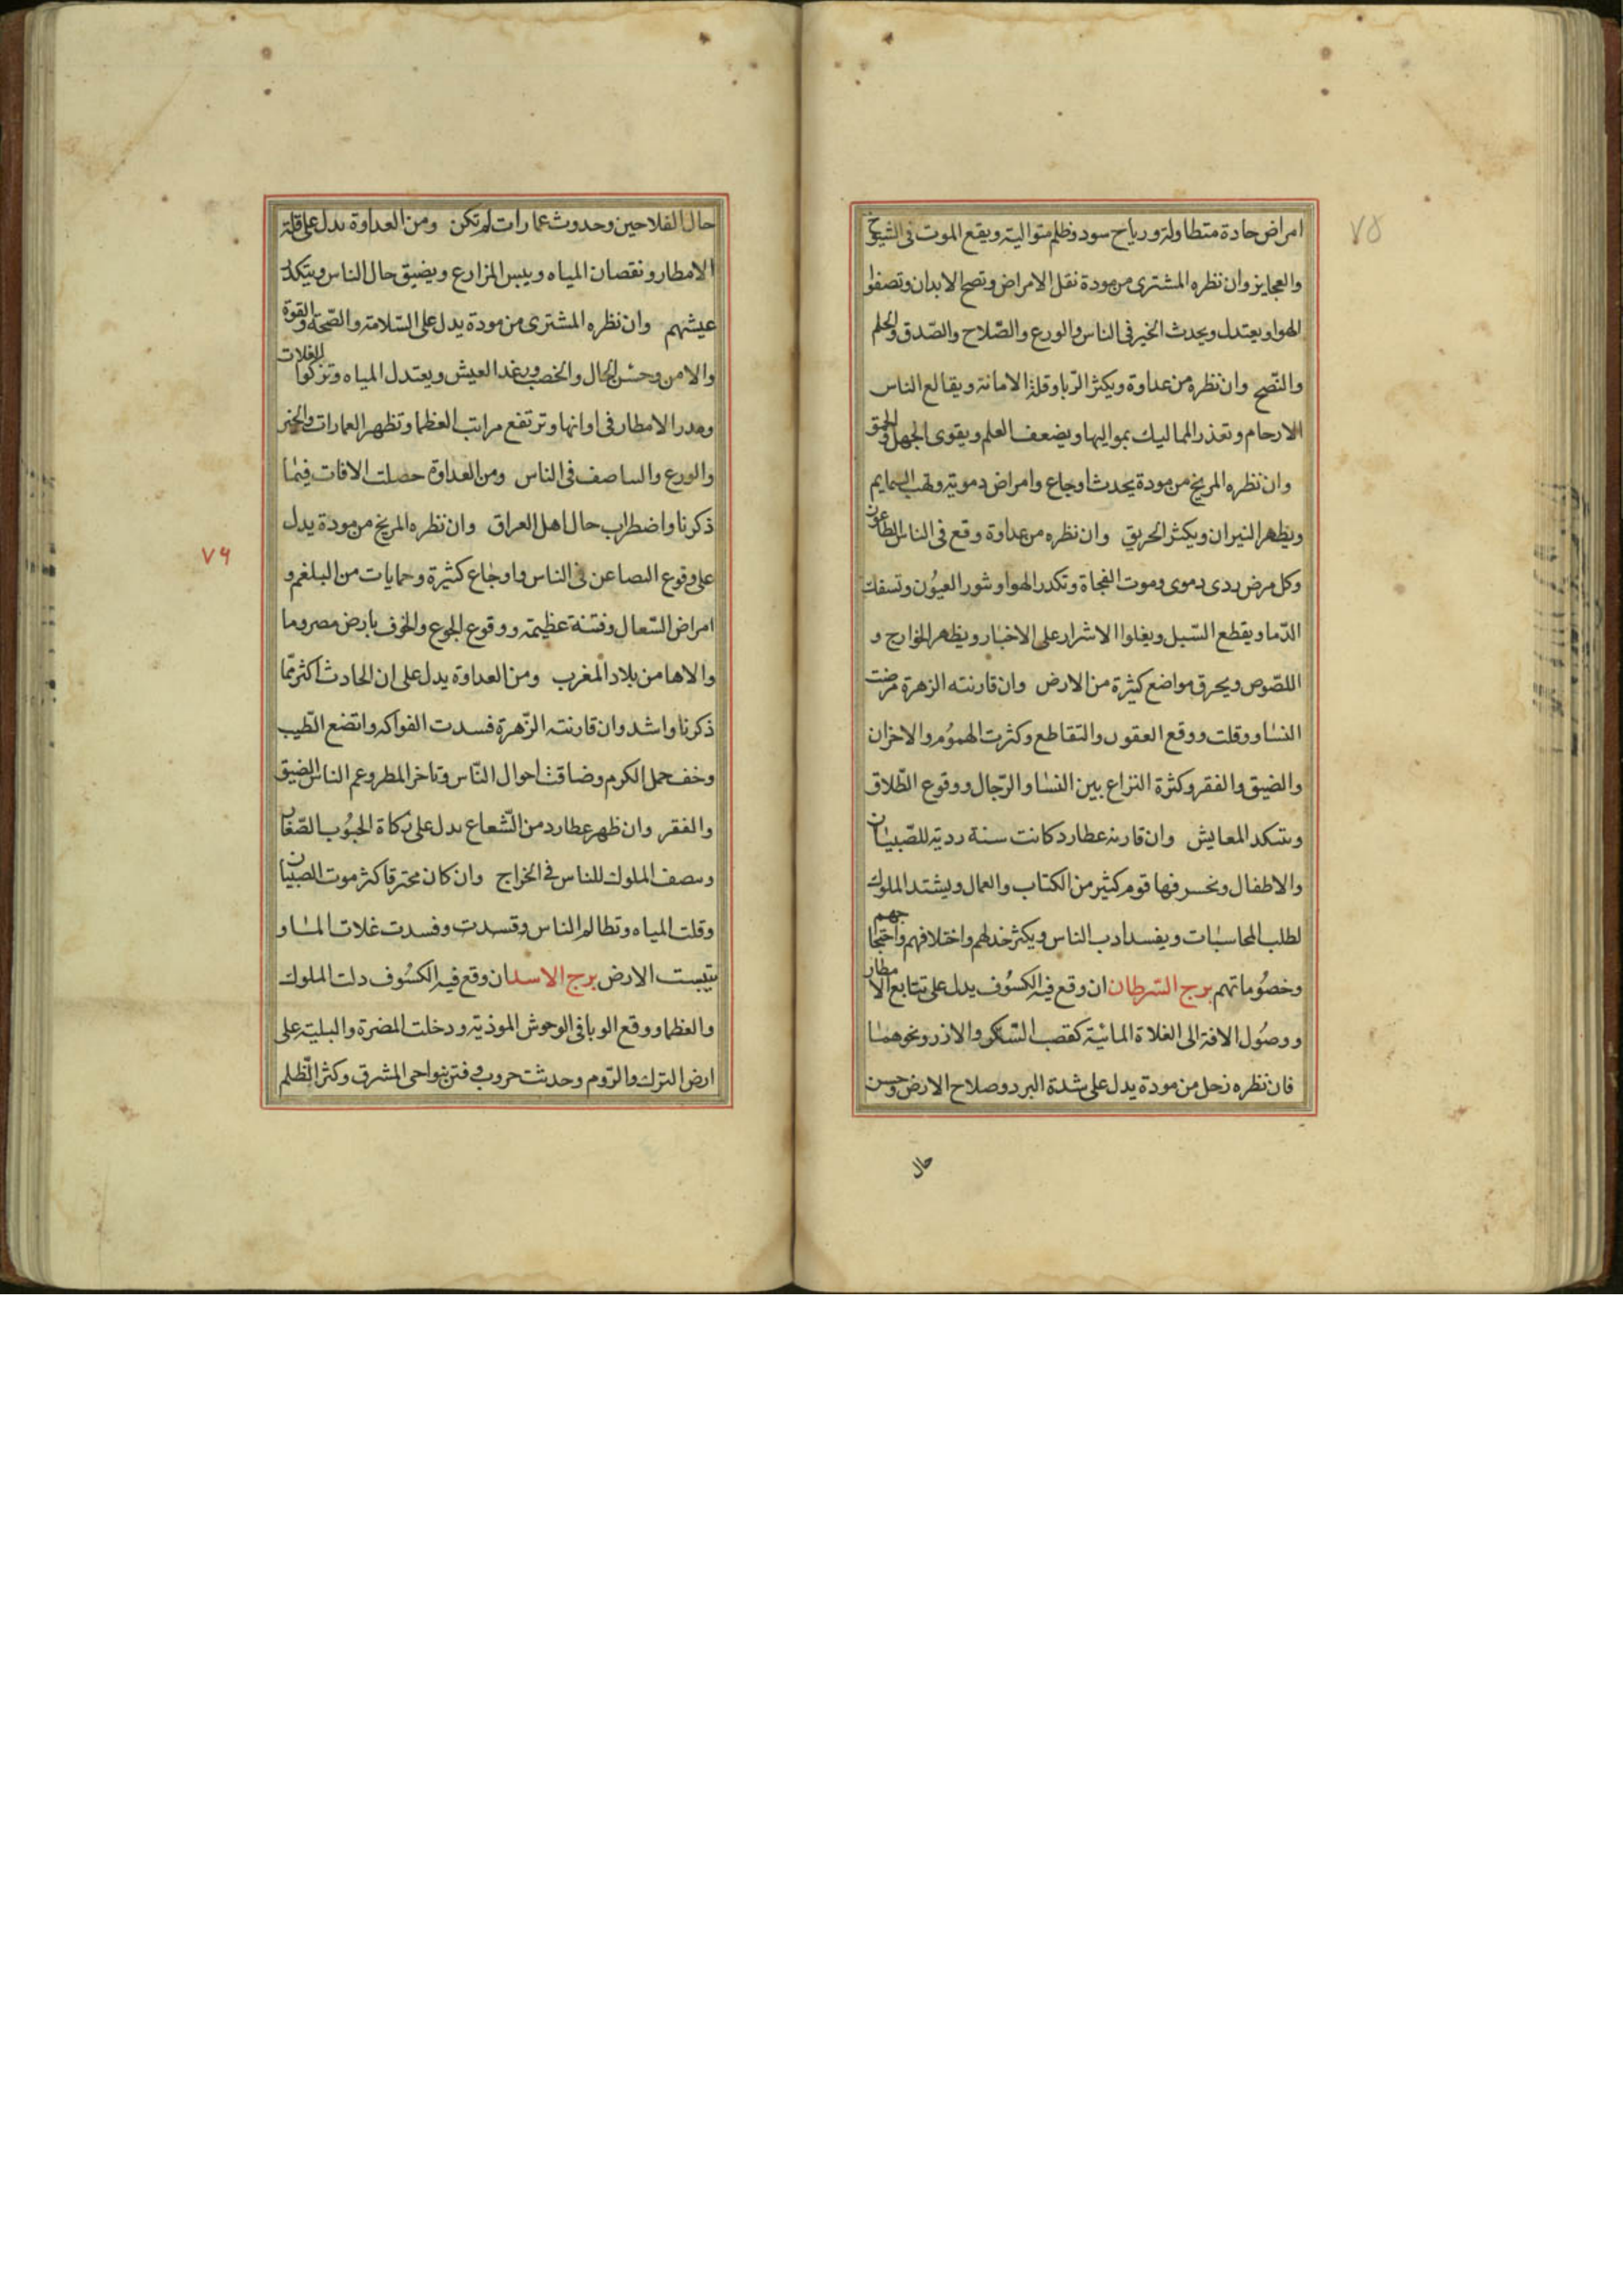 ٧٥
امراض حادة متطاولة ورياح سود وظلم متوالية ويقع الموت فى الشيوخ
والعجايز وان نظره المشترى من مودة نقل الامراض وتصح الابدان وتصفوا
الهوا ويعتدل ويحدث الخير فى الناس والورع والصّلاح والصّدق والحلم
والنّصح وان نظره من عداوة ويكثر الرّبا وقلة الامانة ويقالع الناس
الارحام وتعذر المماليك بمواليها ويضعف العلم ويقوى الجهل والحمق
وان نظره المريخ من مودة يحدث اوجاع وامراض دموية وتهب السمايم
ويظهر النيران ويكثر الحريق وان نظره من عداوة وقع فى الناس الطاعون
وكل مرض ردى دموى وموت الفجاة وتكدر الهوا وشور العيُون وتسفك
الدّما ويقطع السّبل ويغلوا الاشرار على الاخيار ويظهر الخوارج و
اللصّوص ويحرق مواضع كثيرة من الارض وان قارنته الزهرة مرضت
النسٰا ووقلت ووقع العقوں والتقاطع وكثرت الهموُم والاحزان
والضيق والفقر وكثرة النزاع بين النسٰا والرّجال ووقوع الطّلاق
وىتكد المعايش وان قارنه عطارد كانت سنة ردية للصّبيٰان
والاطفال ونحسر فيها قوم كثير من الكتاب والعمال ويشتد الملوك
لطلب المحاسبٰات ويفسد ادب الناس ويكثر خدلهم واختلافهم واحتجاجهم
وخصوُماتهم برج السّرطان ان وقع فيه الكسُوف يدل على تتابع الامطار
ووصُول الافة الى الغلاة المائيّة كقصب السّكر والارز ونحوهمٰا
فان نظره زحل من مودة يدل على شدة البرد وصلاح الارض وحسن
حال
حال الفلاحين وحدوث عمارات لم تكن ومن العداوة ىدل على قلة
الامطار ونقصان المياه وييبس المزارع ويضيق حال الناس ويتكد
عيشهم وان نظره المشترى من مودة يدل على السّلامة والصّحة والقوة
والامن وحسْن الحال والخصب ورغد العيش ويعتدل المياه وتزكوا الغلات
وىدر الامطار فى اوانها وترتفع مراتب العظما وتظهر العمارات والخير
والورع والىىاصف فى الناس ومن العداوة حصلت الافات فيمٰا
ذكرنا واضطراب حال اهل العراق وان نظره المريخ من مودة يدل
على وقوع الىصاعن فى الناس واوجٰاع كثيرة وحمايات من البلغم و
امراض السّعال وفتنة عظيمة ووقوع الجوع والخوف بارض مصر وما
والاها من بلاد المغرب ومن العداوة يدل على ان الحادث اكثر ممّا
ذكرنا واشد وان قارنته الزّهرة فسدت الفواكه واتضع الطّيب
وخف حمل الكرم وضاقت احوال النّاس وتاخر المطر وعم الناس الضيق
والفقر وان ظهر عطارد من الشّعاع ىدل على زكاة الحبُوب الصّغار
وىىصف الملوك للناس فى الخراج وان كان محترقا كثر موت الصّبيٰان
وقلت المياه وتظالم الناس وقسدت وفسدت غلات المسٰا و
تيبست الارض برج الاسد ان وقع فيه الكسُوف دلت الملوك
والعظما ووقع الوبا فى الوحوش الموذية ودخلت المضرة والبلية على
ارض الترك والرّوم وحدثت حروب وفتن بنواحى المشرق وكثر الظّلم
٧٦